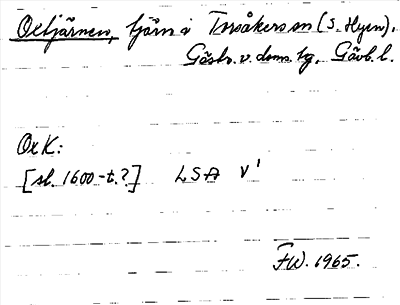 Oxtjärnen, tjärn i Torsåkers sn (S. Hyen).
Gästr. v. doms. bg. Gävb. l.
Ox K:
[sl. 1600-t.?] LSA V¹
FW. 1965.